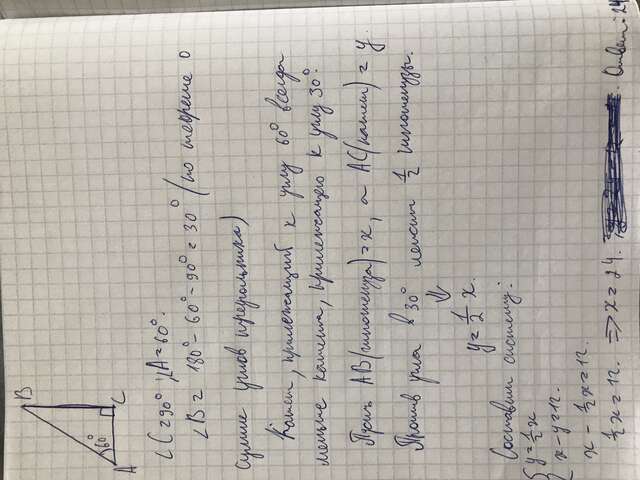 B
60°
A
C
∠C=90°, ∠A=60°.
∠B = 180°-60°-90°=30° (по теореме о
сумме углов треугольника)
Катет, прилежащий к углу 60° всегда
меньше катета, прилежащего к углу 30°.
Пусть AB(гипотенуза)=x, а AC(катет)=y.
Против угла в 30° лежит 1/2 гипотенузы.
⇓
y=1/2 x.
Составим систему:
{ y=1/2 x
x-y=12.
x - 1/2 x=12.
1/2 x=12. ⇒ x=24. Ответ: 24